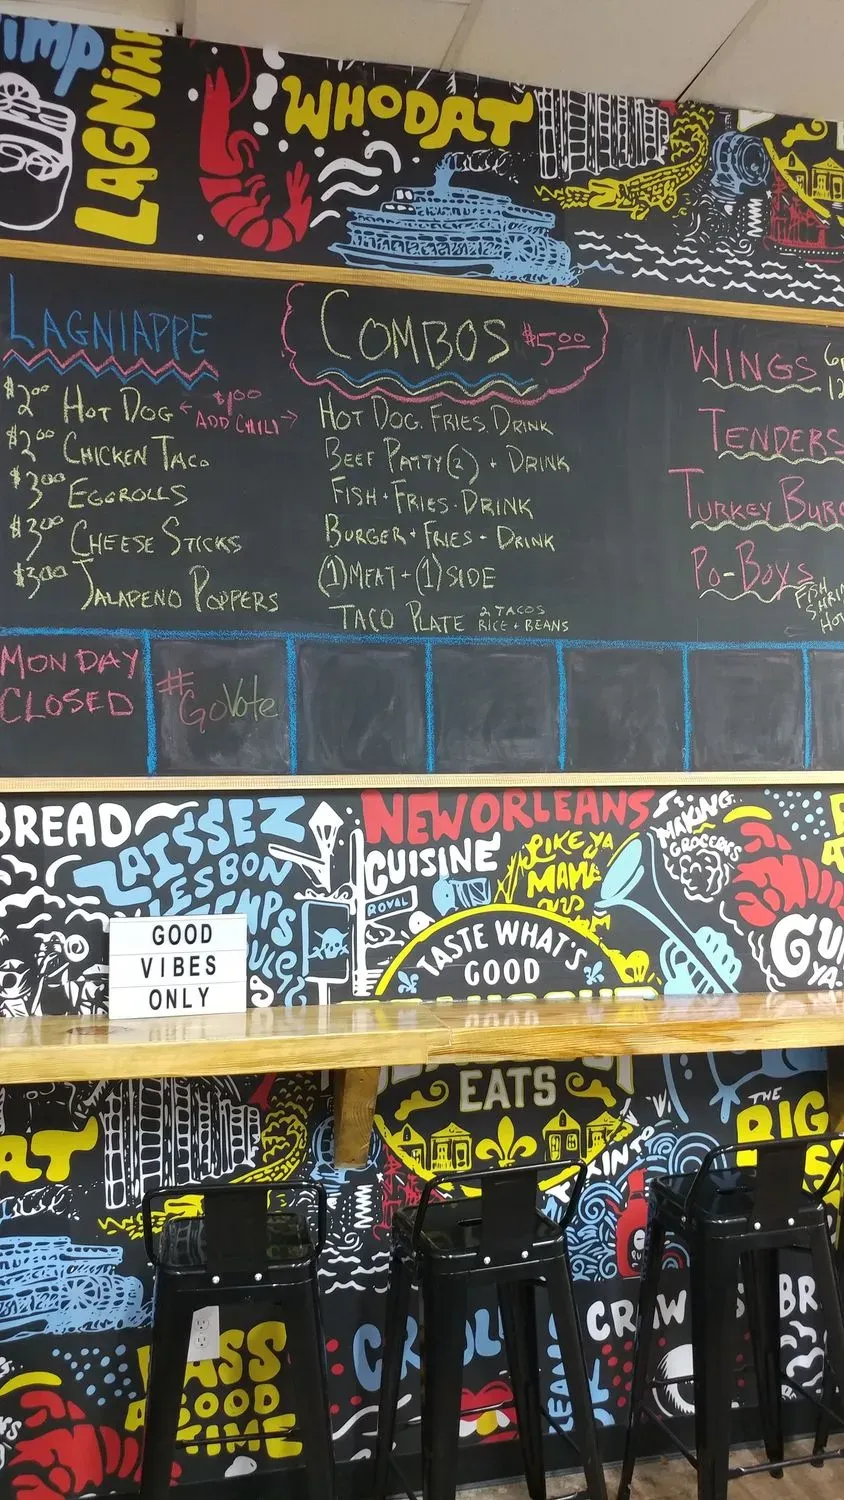 LAGNIAP
WHODAT
LAGNIAPPE
$2.00 HOT DOG ← $1.00 ADD CHILI →
$2.00 CHICKEN TACO
$3.00 EGGROLLS
$3.00 CHEESE STICKS
$3.00 JALAPENO POPPERS
COMBOS $5.00
HOT DOG. FRIES. DRINK
BEEF PATTY(2) + DRINK
FISH + FRIES. DRINK
BURGER + FRIES + DRINK
(1) MEAT + (1) SIDE
TACO PLATE 2 TACOS
RICE + BEANS
WINGS
TENDERS
TURKEY BURG
PO-BOYS
FISH
SHRIM
HOT
MONDAY
CLOSED
#GoVote
BREAD
LAISSEZ
LESBON
NEW ORLEANS
CUISINE
ROYAL
LIKE YA
MAMA
MAKING
GROCERIES
TASTE WHAT'S
GOOD
EATS
GOOD
VIBES
ONLY
AT
THE
BIG
PASS
A GOOD
TIME